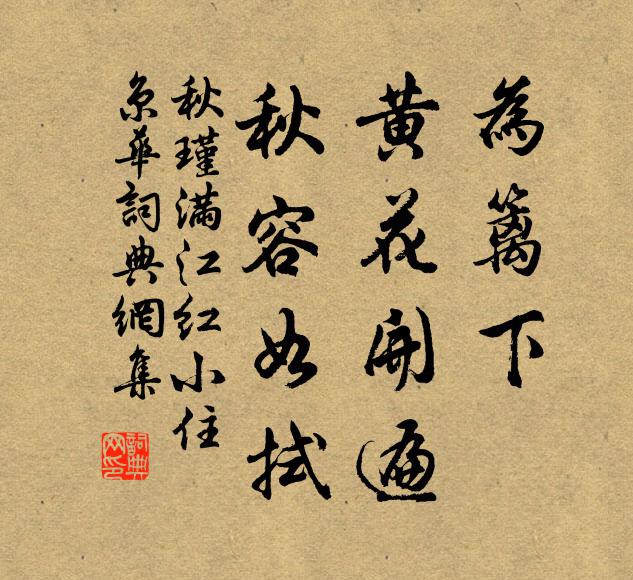 為籬下
黄花開遍
秋容如拭
秋瑾满江红小住
京華詞典網集
詞典
网印